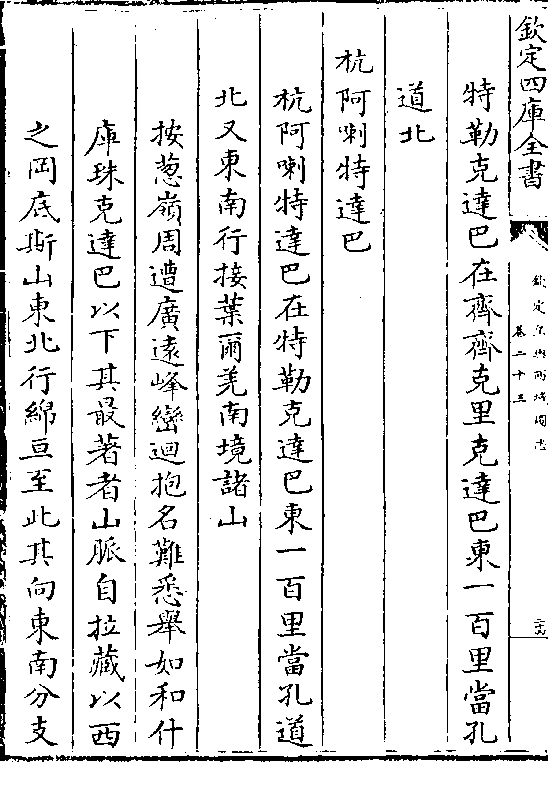 欽定四庫全書
欽定皇輿西域圖志
卷二十三
特勒克達巴在齊齊克里克達巴東一百里當孔
道北
杭阿喇特達巴
杭阿喇特達巴在特勒克達巴東一百里當孔道
北又東南行接葉爾羌南境諸山
按葱嶺周遭廣遠峰巒迴抱名難悉舉如和什
庫珠克達巴以下其最著者山脈自拉藏以西
之岡底斯山東北行綿亘至此其向東南分支